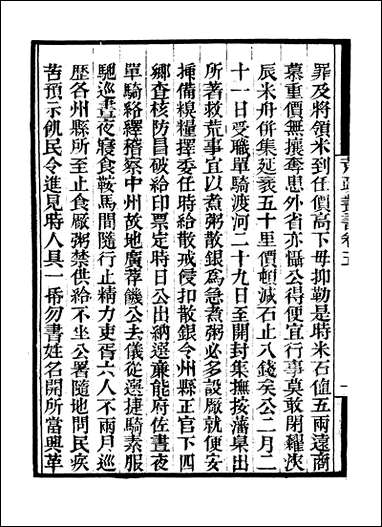 罪及將領米到任價高下毋抑勒是時米石值五兩遠商
慕重價無攘奪患外省亦懾公得便宜行事莫敢閉糴浹
辰米舟併集延袤五十里價頓減石止八錢矣公二月二
十一日受職單騎渡河二十九日至開封集撫按藩臬出
所著救荒事宜以煮粥散銀爲急煮粥必多設厰就便安
插備糗糧擇委任時給散戒侵扣散銀令州縣正官下四
鄉查核防冒破給印票定時日公出納選亷能府佐晝夜
單騎絡繹稽察中州故地廣莽饑公去儀從選捷騎素服
馳巡晝夜寢食鞍馬間隨行止精力吏胥六人不兩月巡
歷各州縣所至止食厰粥禁供給不坐公署隨地問民疾
苦預示飢民令進見時人具一揭勿書姓名開所當興革
荒政叢書卷五
一